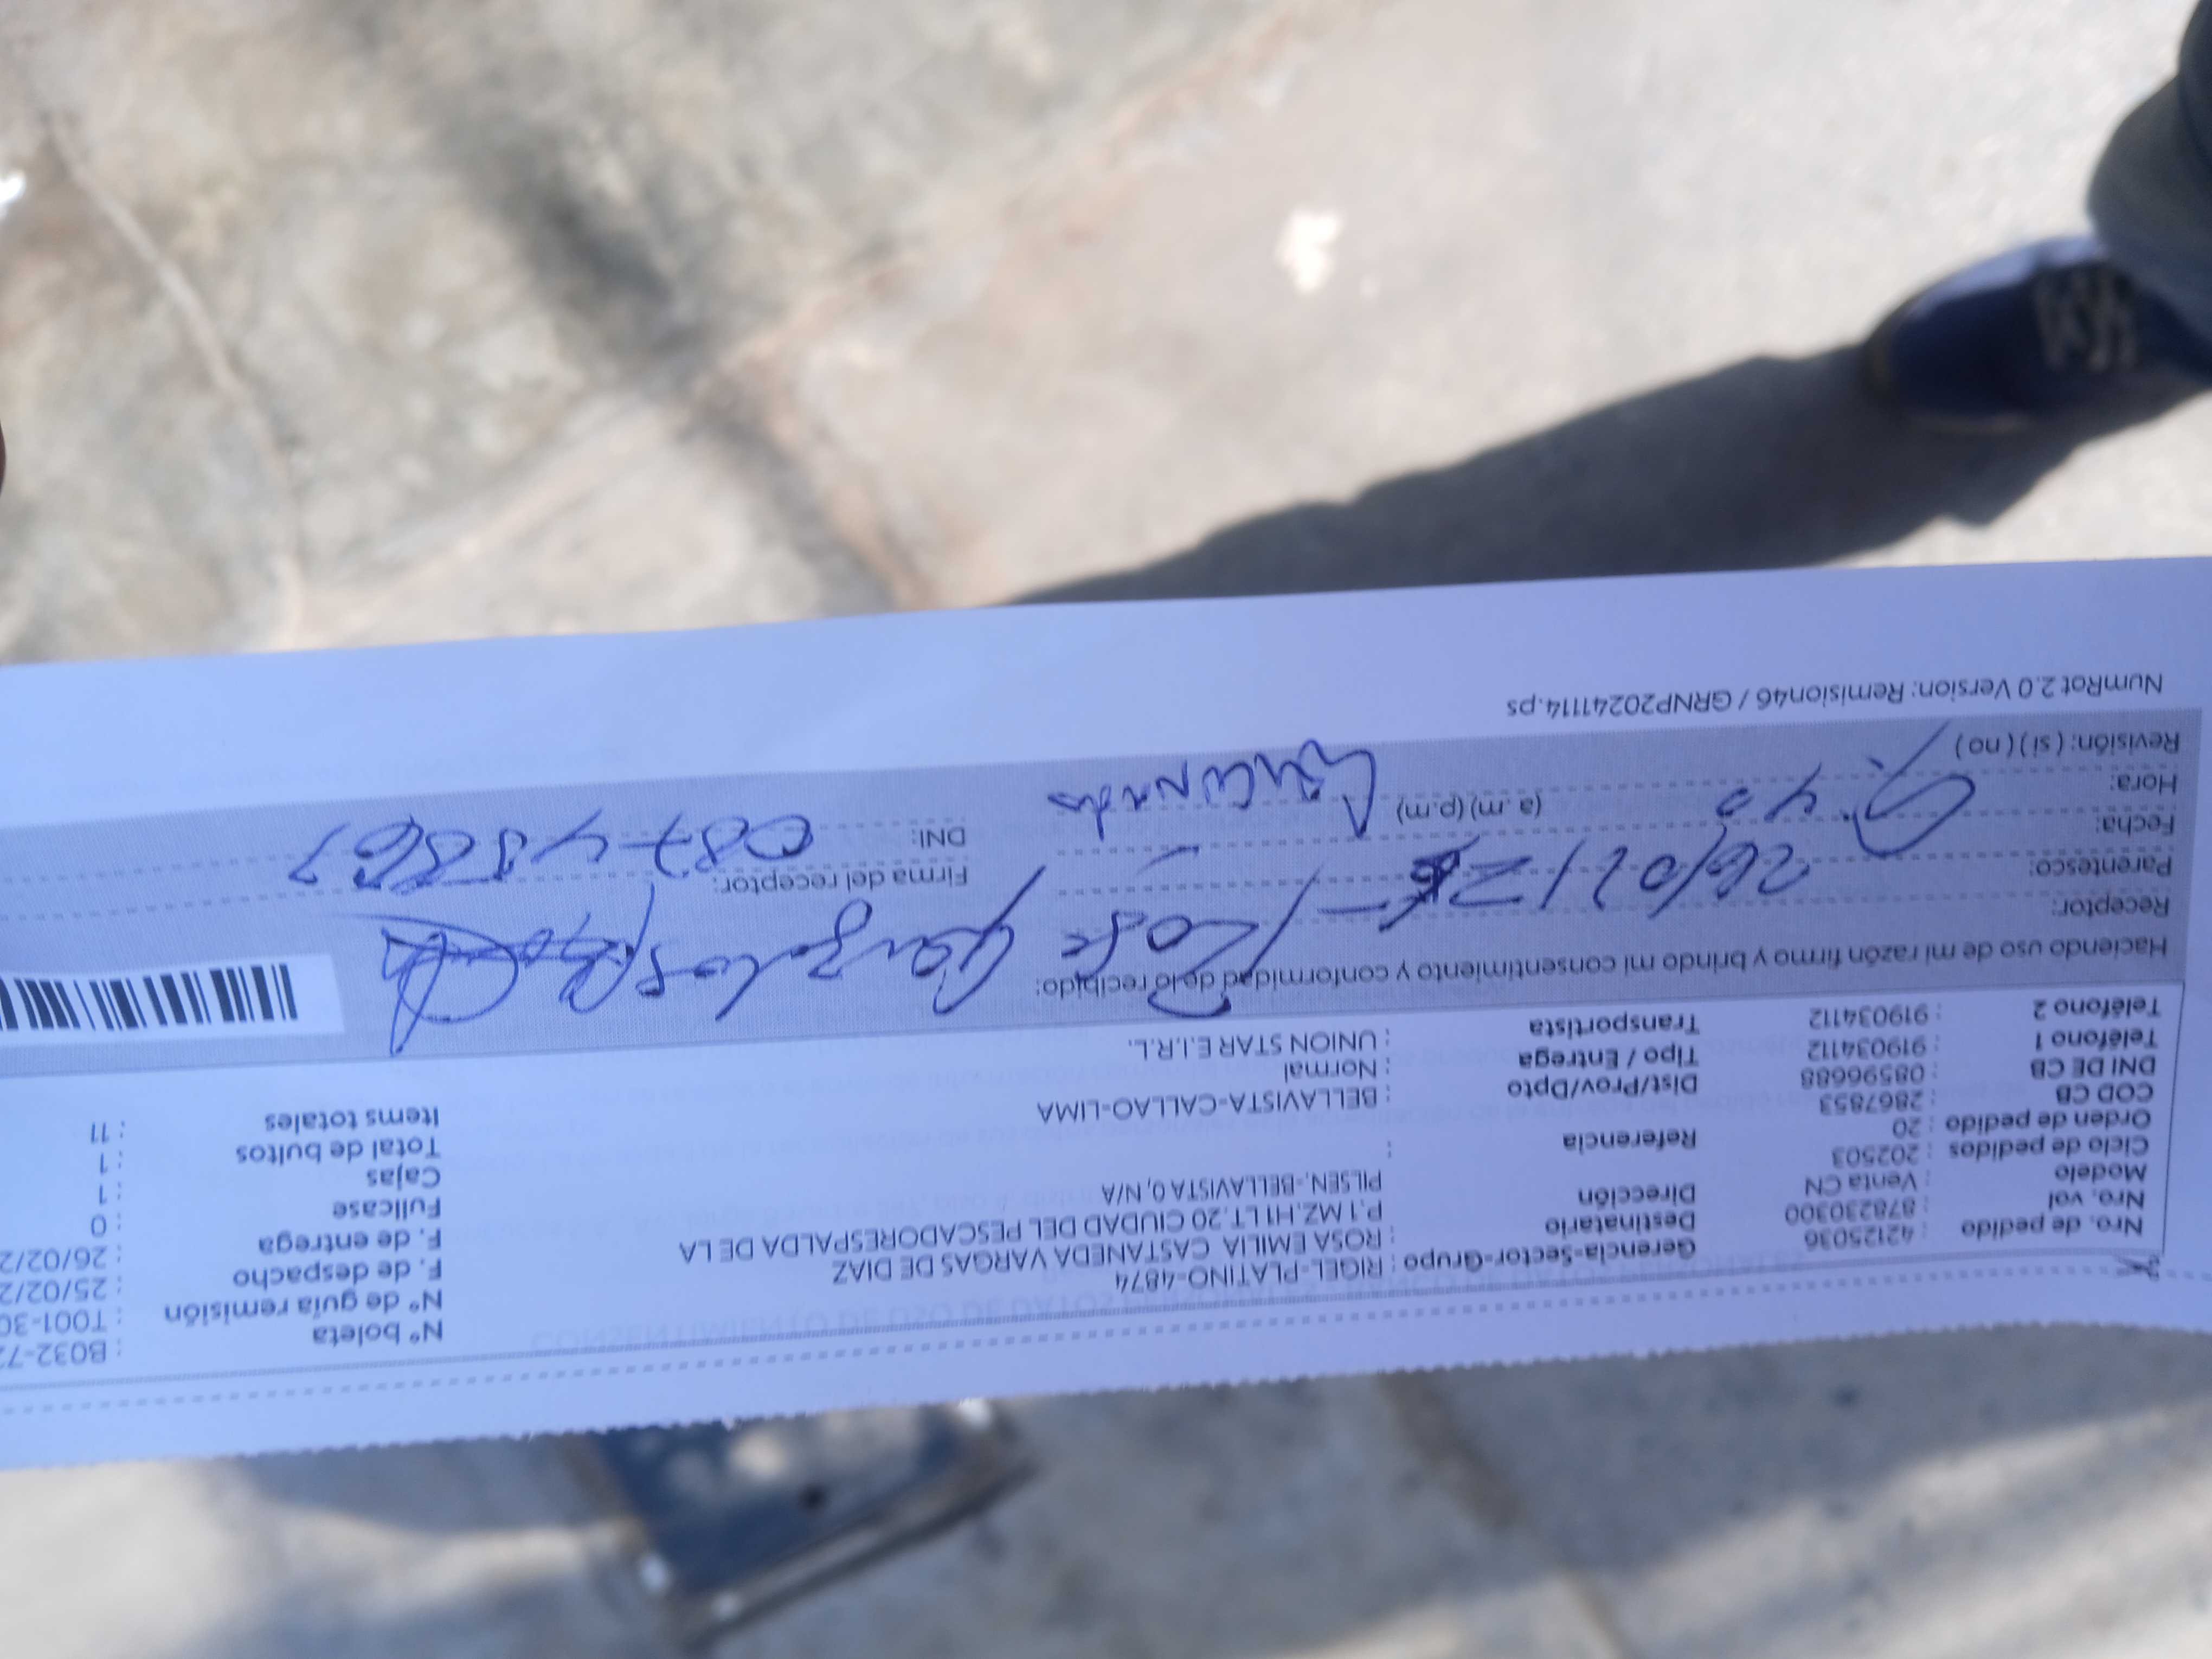 Nº boleta : B032-7
Nº de guía remisión : T001-30
F. de despacho : 25/02/2
F. de entrega : 26/02/2
Fullcase : 0
Cajas : 1
Total de bultos : 1
Items totales : 11
Gerencia-Sector-Grupo : RIGEL-PLATINO-4874
Destinatario : ROSA EMILIA CASTANEDA VARGAS DE DIAZ
Dirección P.1 MZ.H1 LT.20 CIUDAD DEL PESCADORESPALDA DE LA
PILSEN,-BELLAVISTA 0, N/A
Referencia :
Dist/Prov/Dpto : BELLAVISTA-CALLAO-LIMA
Tipo / Entrega : Normal
Transportista : UNION STAR E.I.R.L.
Nro. de pedido : 42125036
Nro. vol : 878230300
Modelo : Venta CN
Ciclo de pedidos : 202503
Orden de pedido : 20
COD CB : 2867853
DNI DE CB : 08596688
Teléfono 1 : 919034112
Teléfono 2 : 919034112
Haciendo uso de mi razón firmo y brindo mi consentimiento y conformidad de lo recibido:
Receptor: Rose
Parentesco:
Fecha: 26/02/2
Hora: (a.m) (p.m)
Revisión: ( si ) ( no )
Firma del receptor:
DNI:
NumRot 2.0 Version: Remision46 / GRNP20241114.ps